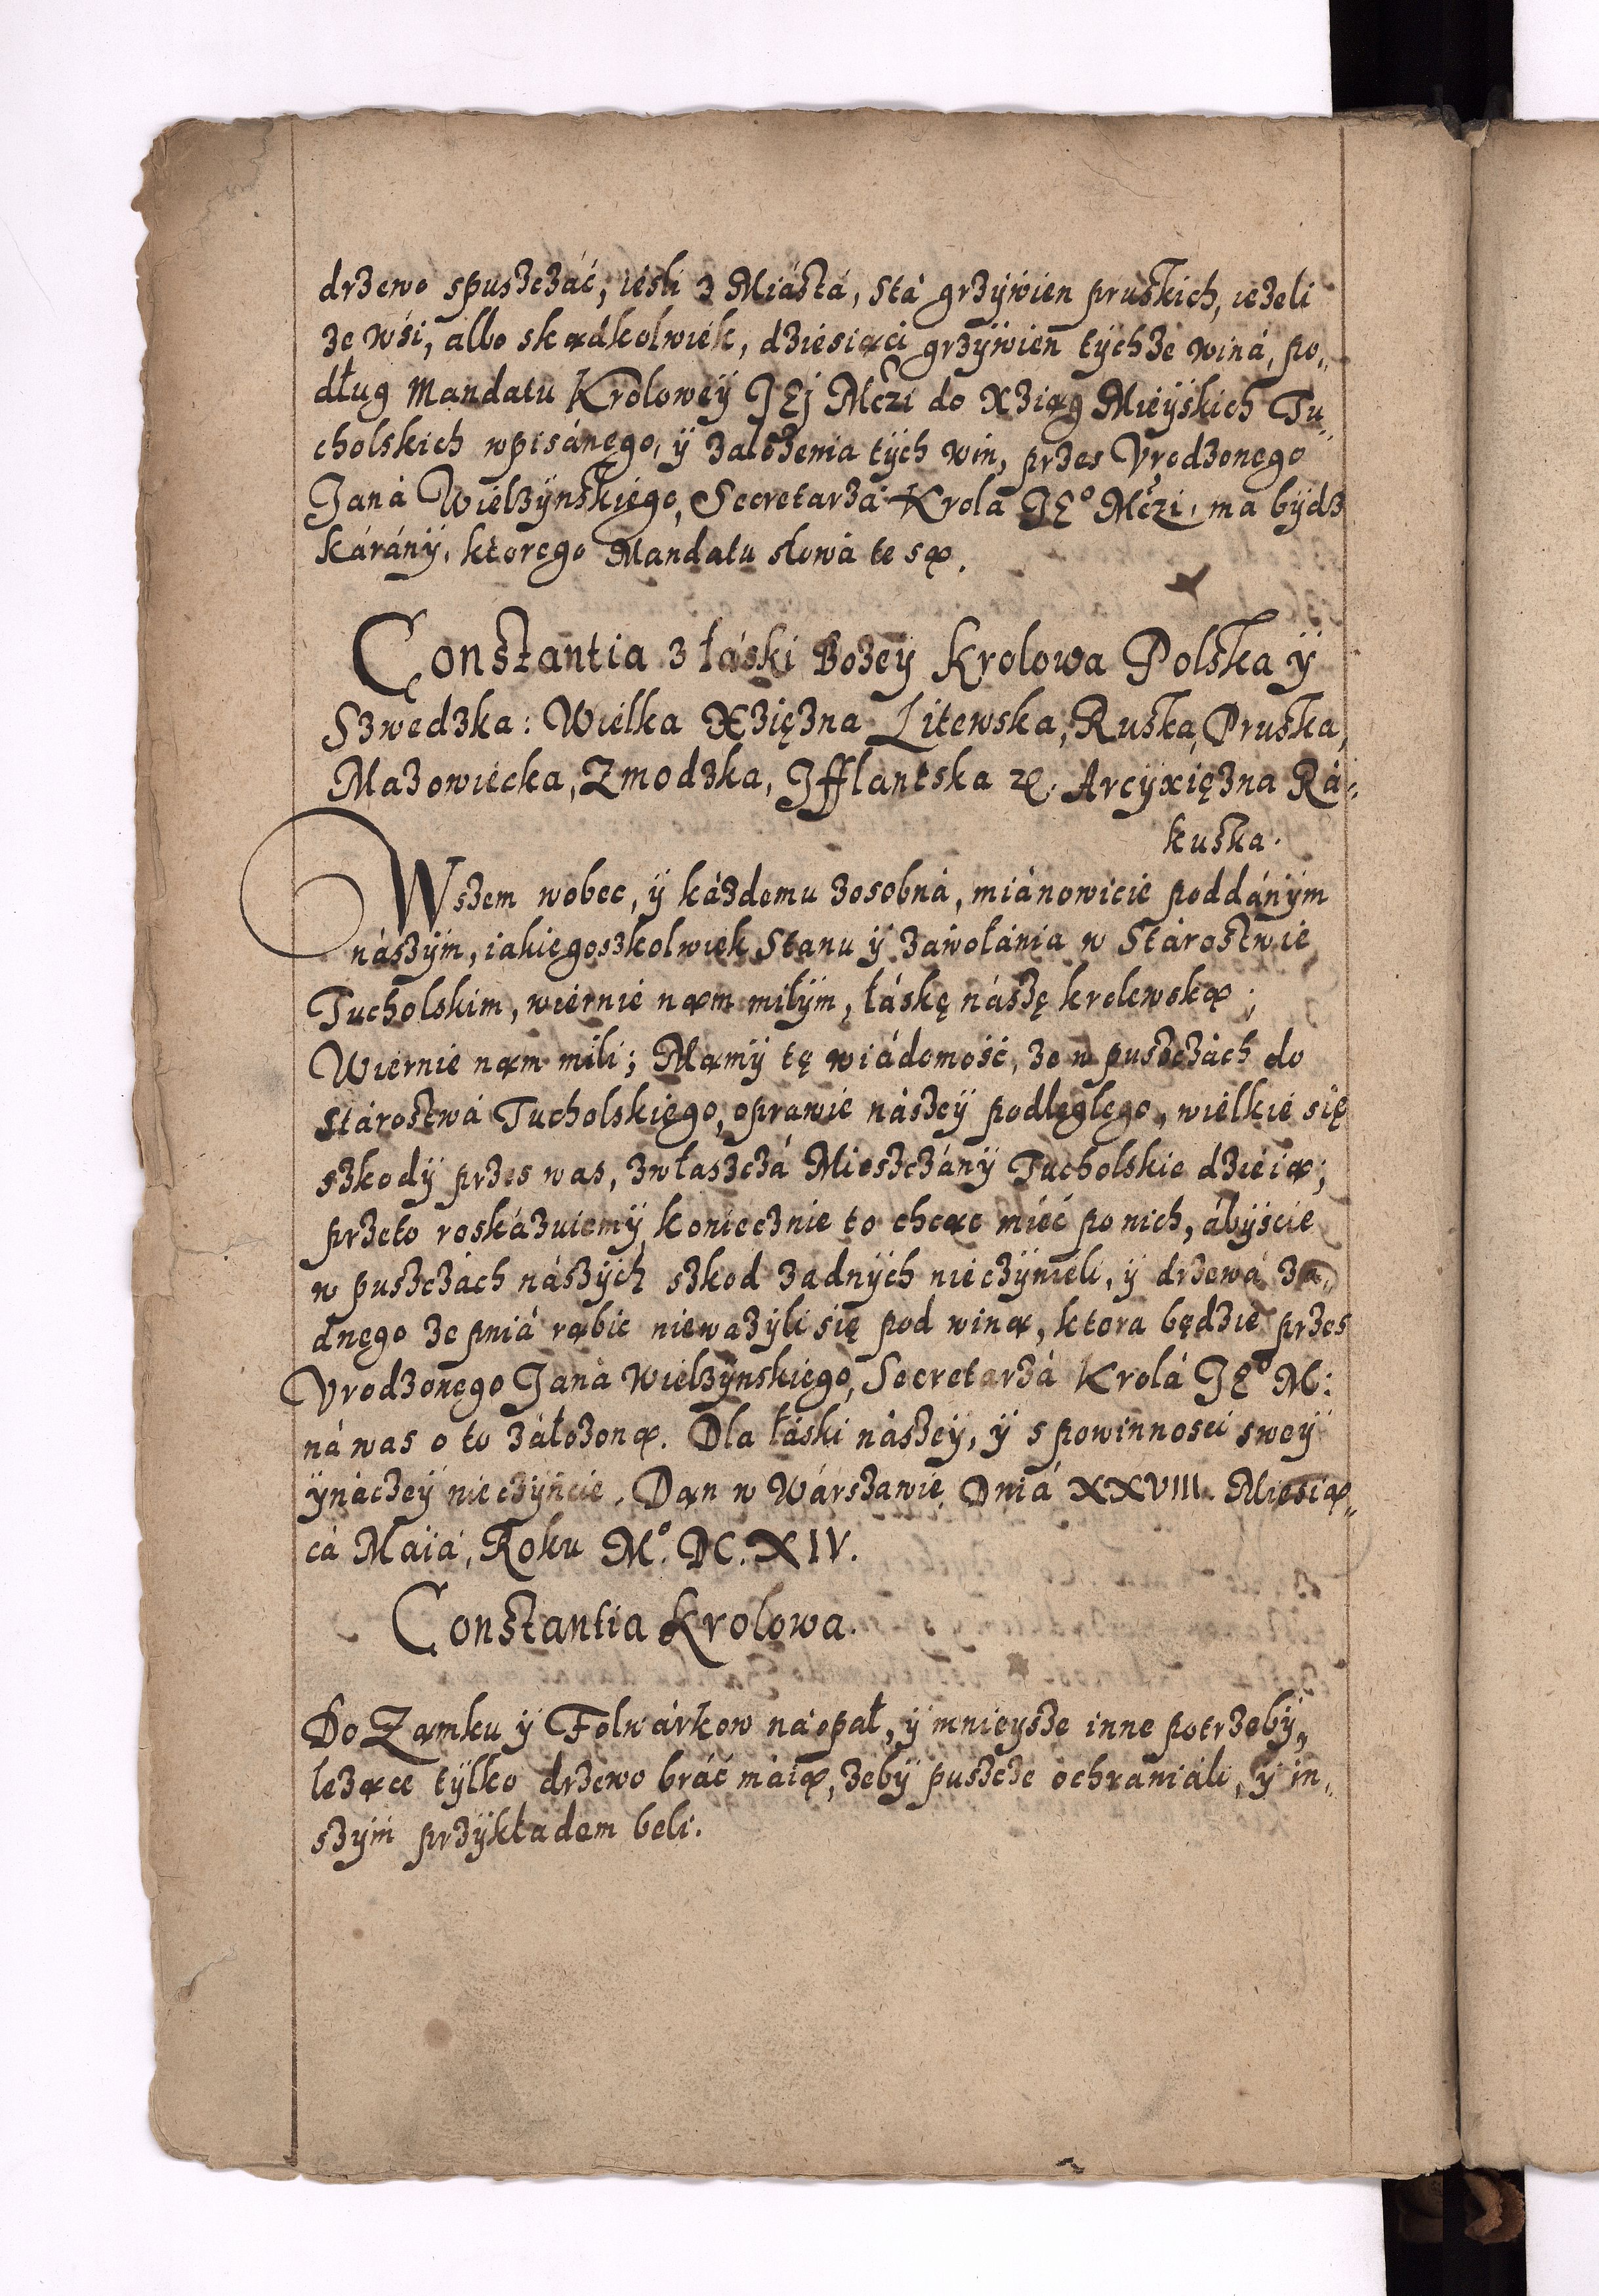 drzewo spuszczáć, iesli z Miástá, stá grzywien pruskich, ieżeli
ze wśi, albo skądkolwiek, dziesiąci grzywien tychże winá, po„
dług Mandatu Krolowey JEj Mczi do Xziąg Mieyskich Tu„
cholskich wpisánego, ÿ záłożenia tÿch win, przes Vrodzonego
Janá Wielzÿnskiego, Secretarzá Krola JEº Mczi, ma bÿdz
kárány, ktorego Mandatu słowá te są.
Constantia z łáski Bożeÿ Krolowa Polska ÿ
Szwedzka: Wielka Xziężna Litewska, Ruska, Pruska,
Mazowiecka, Zmodzka, Jfflantska ꝛc. Arcÿxiężna Rá„
kuska.
Wszem wobec, ÿ káżdemu zosobná, miánowicie poddánÿm
nászÿm, iakiegoszkolwiek Stanu ÿ zawołánia w Stárostwie
Tucholskim, wiernie nąm miłÿm, łáskę nászę krolewską;
Wiernie nąm mili; Mąmÿ tę wiádomość, że w puszczách do
Stárostwá Tucholskiego, oprawie nászeÿ podległego, wielkie się
szkodÿ przes was, zwłaszczá Mieszczánÿ Tucholskie dzieią;
przeto roskázuiemÿ, koniecznie to chcąc mieć po nich, ábÿscie
w puszczách nászÿch szkod żadnÿch nieczÿnieli, ÿ drzewá ża„
dnego ze pniá rąbic nieważÿli się pod winą, ktora będzie przes
Vrodzonego Janá Wielzÿnskiego, Secretarzá Krolá JEº M:
ná was o to záłożoną. Dla łáski nászeÿ, ÿ s powinnosci sweÿ
ÿnáczeÿ nieczÿńcie. Dąn w Wárszawie Dniá XXVIII. Miesią„
cá Maïá, Roku Mº. DC. XIV.
Constantia Krolowa.
Do Ząmku ÿ Folwárkow ná opał, ÿ mnieysze inne potrzebÿ,
leżące tÿlko drzewo bráć máią, żebÿ puszcze ochraniáli, ÿ in„
szÿm przÿkładem beli.